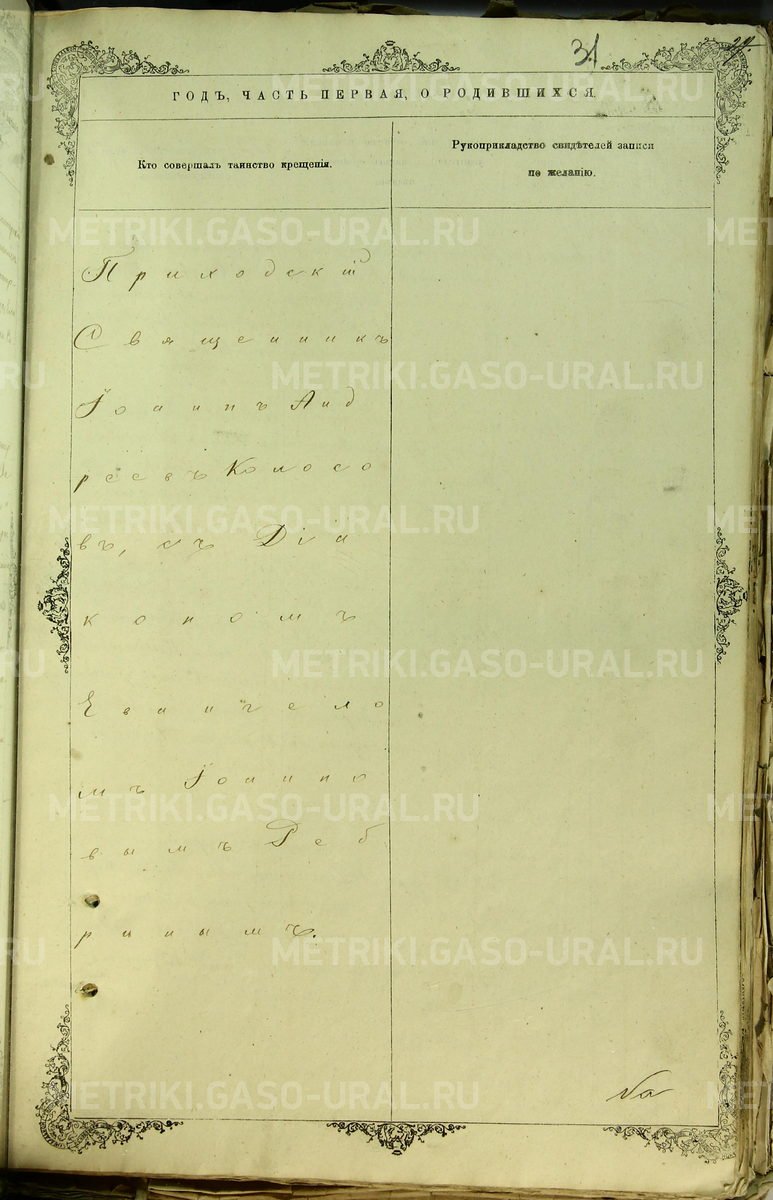 31
29.
ГОДЪ, ЧАСТЬ ПЕРВАЯ, О РОДИВШИХСЯ.
Кто совершалъ таинство крещенія.
Рукоприкладство свидѣтелей записи
по желанію.
Приходскій
Священникъ
Іоаннъ Анд
реевъ Колосо
въ, съ Діа
кономъ
Евангело
мъ Іоанно
вымъ Реб
ринымъ.
METRIKI.GASO-URAL.RU